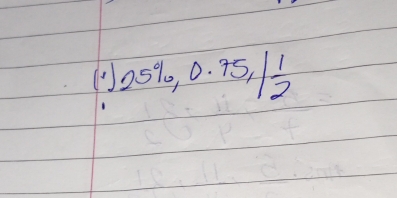 (i) 25%, 0.75, 1 1/2